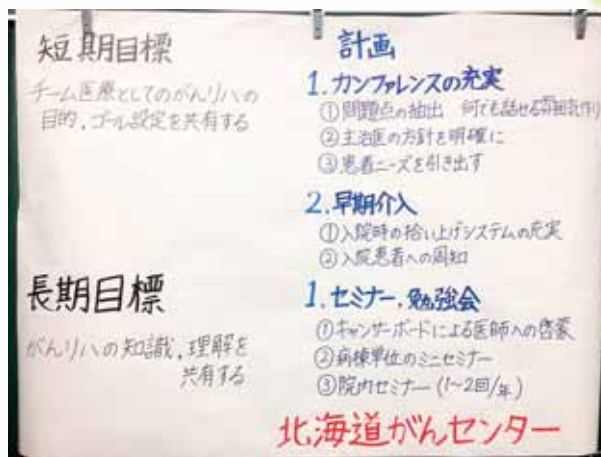 短期目標
チーム医療としてのがんリハの
目的、ゴール設定を共有する
長期目標
がんリハの知識、理解を
共有する
計画
1. カンファレンスの充実
①問題点の抽出 何でも話せる雰囲気作り
②主治医の方針を明確に
③患者ニーズを引き出す
2. 早期介入
①入院時の拾い上げシステムの充実
②入院患者への周知
1. セミナー、勉強会
①キャンサーボードによる医師への啓蒙
②病棟単位のミニセミナー
③院内セミナー(1~2回/年)
北海道がんセンター